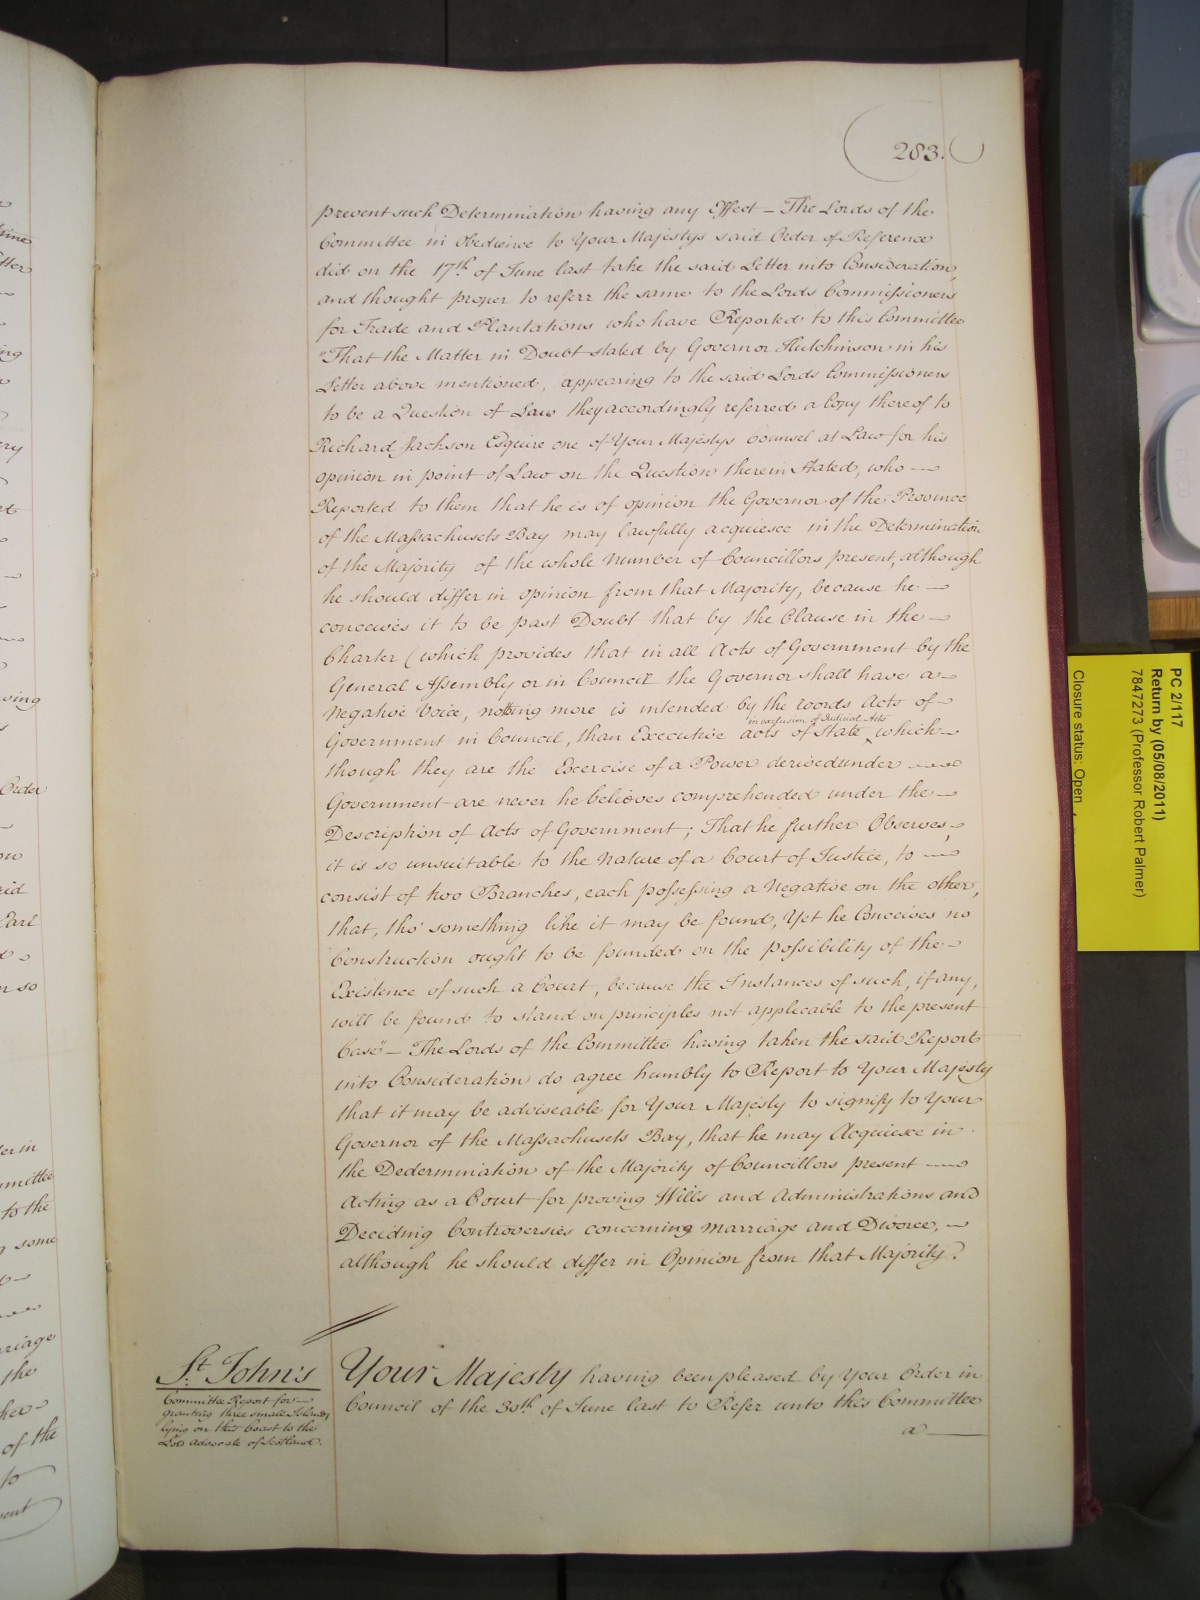 283.
prevent such Determination having any Effect – The Lords of the
Committee in obedience to Your Majestys said Order of Reference
did on the 17th of June last take the said Letter into Consideration,
and thought proper to referr the same to the Lords Commissioners
for Trade and Plantations who have Reported to this Committee
"That the Matter in Doubt stated by Governor Hutchinson in his
Letter above mentioned, appearing to the said Lords Commissioners
to be a Question of Law they accordingly referred a Copy thereof to
Richard Jackson Esquire one of Your Majestys Counsel at Law for his
opinion in point of Law on the Question therein stated, who —
Reported to them that he is of opinion the Governor of the Province
of the Massachusets Bay may lawfully acquiesce in the Determination
of the Majority of the whole Number of Councillors present, although
he should differ in opinion from that Majority, because he —
conceives it to be past Doubt that by the Clause in the —
Charter (which provides that in all Acts of Government by the
General Assembly or in Council the Governor shall have a —
Negative Voice, nothing more is intended by the words Acts of —
in exclusion of Judicial Acts
Government in Council, than Executive acts of State ‸ which —
though they are the Exercise of a Power derived under —
Government are never he believes comprehended under the —
Description of Acts of Government; That he further Observes, —
it is so unsuitable to the Nature of a Court of Justice, to —
consist of two Branches, each possessing a Negative on the other,
that, tho' something like it may be found, Yet he Conceives no
Construction ought to be founded on the possibility of the —
Existence of such a Court, because the Instances of such, if any,
will be found to stand on principles not applicable to the present
Case" – The Lords of the Committee having taken the said Report
into Consideration do agree humbly to Report to Your Majesty
that it may be adviseable for Your Majesty to signify to Your
Governor of the Massachusets Bay, that he may Acquiesce in
the Dedermination of the Majority of Councillors present —
Acting as a Court for proving Wills and Administrations and
Deciding Controversies concerning Marriage and Divorce, —
although he should differ in Opinion from that Majority.
St. John's
Committee Report for —
granting three small Islands
lying on this Coast to the
Lord advocate of Scotland.
Your Majesty having been pleased by Your Order in
Council of the 30th of June last to Refer unto this Committee
a
PC 2/117
Return by (05/08/2011)
7847273 (Professor Robert Palmer)
Closure status: Open